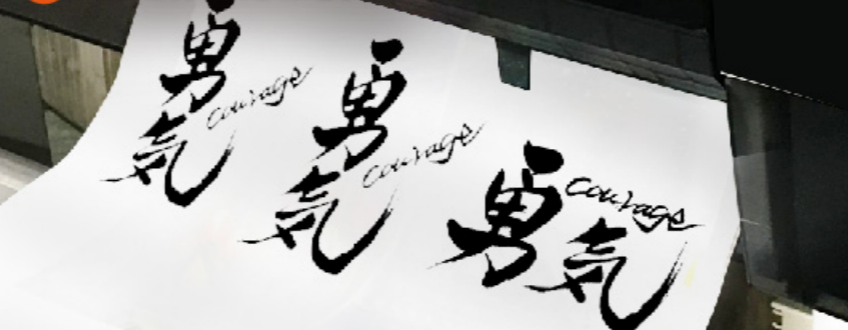 勇気
courage
勇気
courage
勇気
courage